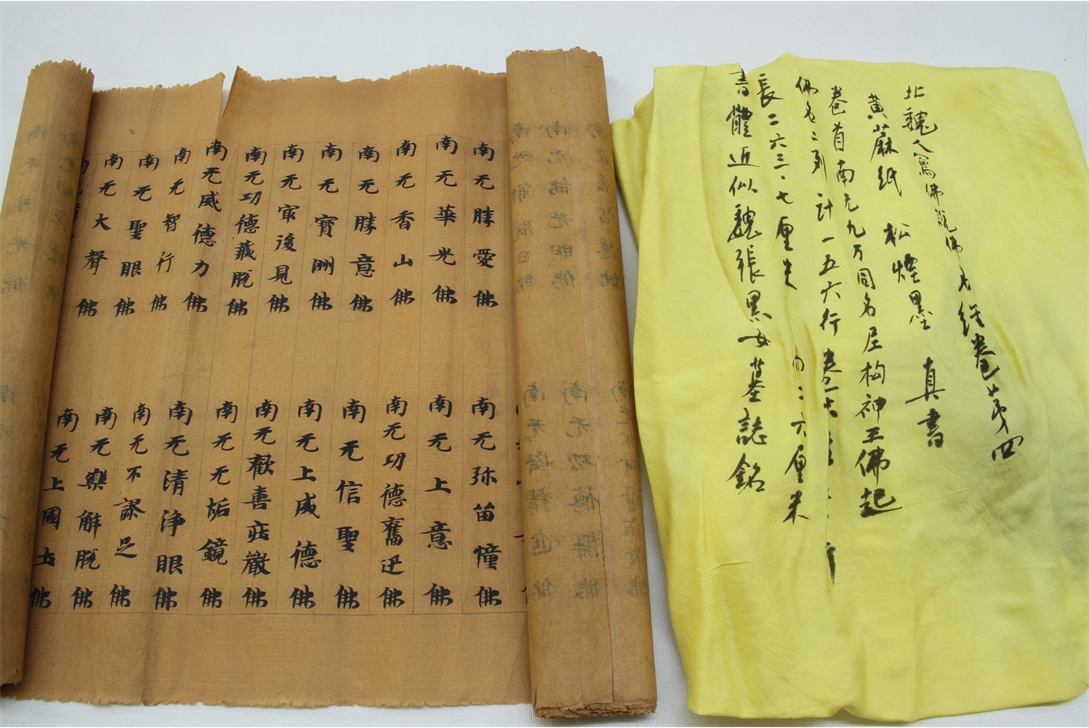 南无勝愛佛
南无華光佛
南无香山佛
南无勝意佛
南无寶洲佛
南无冣後見佛
南无功德藏脱佛
南无威德力佛
南无智行佛
南无聖眼佛
南无大聲佛
南无弥留幢佛
南无上意佛
南无功德奮迅佛
南无信聖佛
南无上威德佛
南无歡善莊嚴佛
南无无垢鏡佛
南无清淨眼佛
南无不謬足佛
南无樂解脱佛
南无上國土佛
北魏人寫佛說佛名經卷第四
黃蔴紙 松煙墨 真書
卷首南无九万同名尼构神王佛起
佛名 計一五六行
長二六三·七厘米 二六厘米
書體近似魏張黑女墓誌銘